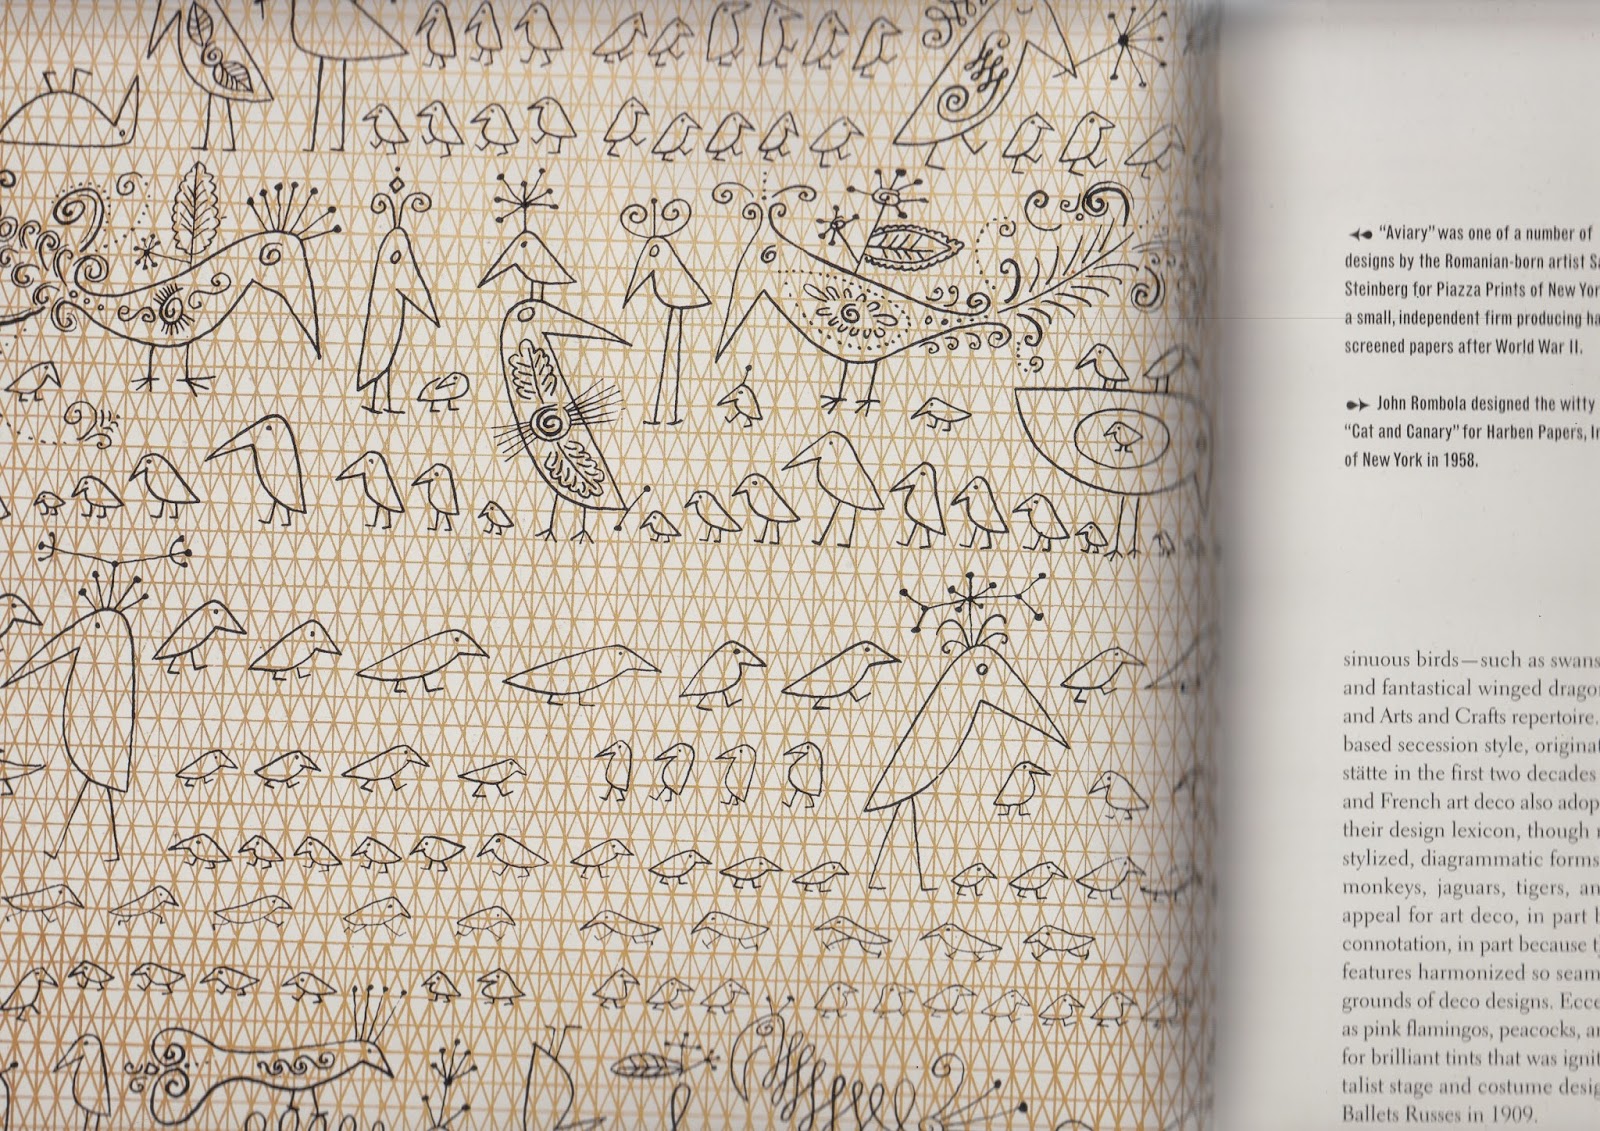 "Aviary" was one of a number of
designs by the Romanian-born artist
Steinberg for Piazza Prints of New
a small, independent firm producing
screened papers after World War II.
John Rombola designed the witty
"Cat and Canary" for Harben Papers,
of New York in 1958.
sinuous birds—such as swans
and fantastical winged
and Arts and Crafts repertoire.
based secession style,
stätte in the first two decades
and French art deco also
their design lexicon, though
stylized, diagrammatic forms
monkeys, jaguars, tigers,
appeal for art deco, in part
connotation, in part because
features harmonized so
grounds of deco designs.
as pink flamingos, peacocks,
for brilliant tints that was
talist stage and costume
Ballets Russes in 1909.